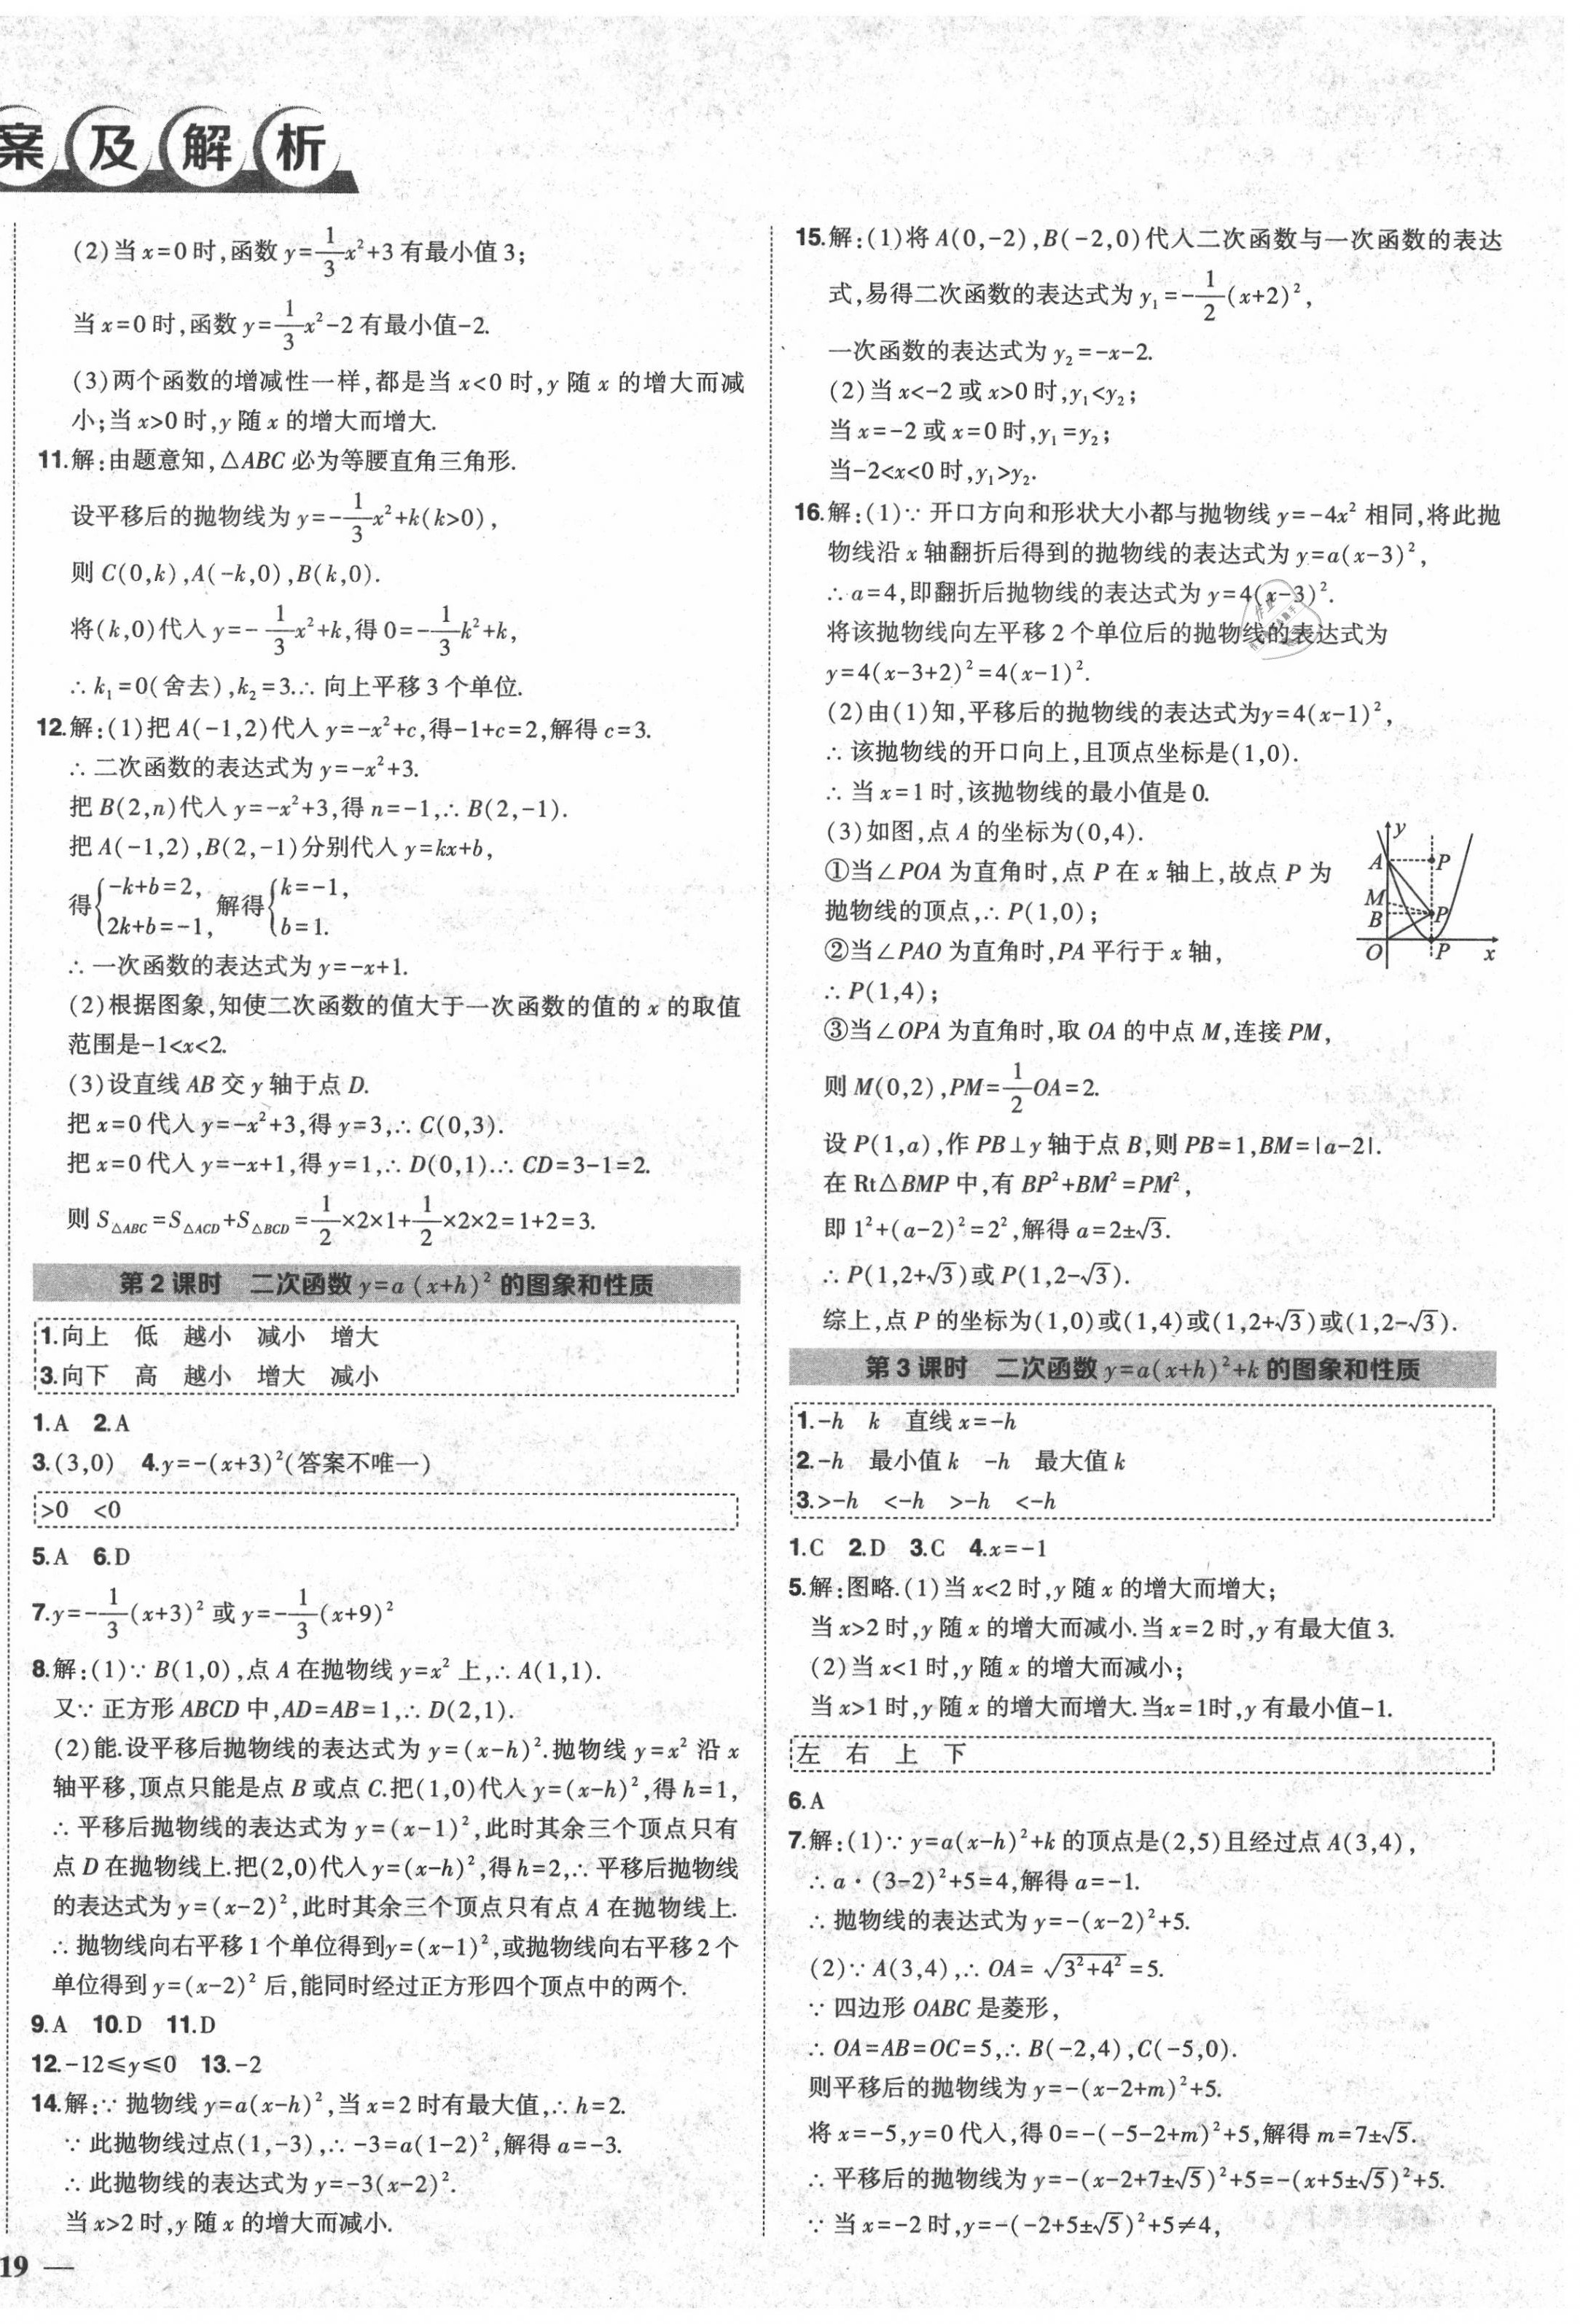 案及解析
(2)当x=0时,函数y=1/3x²+3有最小值3;
当x=0时,函数y=1/3x²-2有最小值-2.
(3)两个函数的增减性一样,都是当x<0时,y随x的增大而减
小;当x>0时,y随x的增大而增大.
11.解:由题意知,△ABC必为等腰直角三角形.
设平移后的抛物线为y=-1/3x²+k(k>0),
则C(0,k),A(-k,0),B(k,0).
将(k,0)代入y=-1/3x²+k,得0=-1/3k²+k,
∴k₁=0(舍去),k₂=3.∴向上平移3个单位.
12.解:(1)把A(-1,2)代入y=-x²+c,得-1+c=2,解得c=3.
∴二次函数的表达式为y=-x²+3.
把B(2,n)代入y=-x²+3,得n=-1,∴B(2,-1).
把A(-1,2),B(2,-1)分别代入y=kx+b,
得{-k+b=2, 2k+b=-1, 解得{k=-1, b=1.
∴一次函数的表达式为y=-x+1.
(2)根据图象,知使二次函数的值大于一次函数的值的x的取值
范围是-1<x<2.
(3)设直线AB交y轴于点D.
把x=0代入y=-x²+3,得y=3,∴C(0,3).
把x=0代入y=-x+1,得y=1,∴D(0,1).∴CD=3-1=2.
则S△ABC=S△ACD+S△BCD=1/2×2×1+1/2×2×2=1+2=3.
第2课时 二次函数y=a(x+h)²的图象和性质
1.向上 低 越小 减小 增大
3.向下 高 越小 增大 减小
1.A 2.A
3.(3,0) 4.y=-(x+3)²(答案不唯一)
>0 <0
5.A 6.D
7.y=-1/3(x+3)²或y=-1/3(x+9)²
8.解:(1)∵B(1,0),点A在抛物线y=x²上,∴A(1,1).
又∵正方形ABCD中,AD=AB=1,∴D(2,1).
(2)能.设平移后抛物线的表达式为y=(x-h)².抛物线y=x²沿x
轴平移,顶点只能是点B或点C.把(1,0)代入y=(x-h)²,得h=1,
∴平移后抛物线的表达式为y=(x-1)²,此时其余三个顶点只有
点D在抛物线上.把(2,0)代入y=(x-h)²,得h=2,∴平移后抛物线
的表达式为y=(x-2)²,此时其余三个顶点只有点A在抛物线上.
∴抛物线向右平移1个单位得到y=(x-1)²,或抛物线向右平移2个
单位得到y=(x-2)²后,能同时经过正方形四个顶点中的两个.
9.A 10.D 11.D
12.-12≤y≤0 13.-2
14.解:∵抛物线y=a(x-h)²,当x=2时有最大值,∴h=2.
∵此抛物线过点(1,-3),∴-3=a(1-2)²,解得a=-3.
∴此抛物线的表达式为y=-3(x-2)².
当x>2时,y随x的增大而减小.
19 —
15.解:(1)将A(0,-2),B(-2,0)代入二次函数与一次函数的表达
式,易得二次函数的表达式为y₁=-1/2(x+2)²,
一次函数的表达式为y₂=-x-2.
(2)当x<-2或x>0时,y₁<y₂;
当x=-2或x=0时,y₁=y₂;
当-2<x<0时,y₁>y₂.
16.解:(1)∵开口方向和形状大小都与抛物线y=-4x²相同,将此抛
物线沿x轴翻折后得到的抛物线的表达式为y=a(x-3)²,
∴a=4,即翻折后抛物线的表达式为y=4(x-3)².
将该抛物线向左平移2个单位后的抛物线的表达式为
y=4(x-3+2)²=4(x-1)².
(2)由(1)知,平移后的抛物线的表达式为y=4(x-1)²,
∴该抛物线的开口向上,且顶点坐标是(1,0).
∴当x=1时,该抛物线的最小值是0.
(3)如图,点A的坐标为(0,4).
①当∠POA为直角时,点P在x轴上,故点P为
抛物线的顶点,∴P(1,0);
②当∠PAO为直角时,PA平行于x轴,
∴P(1,4);
y
A P
M
B P
O P x
③当∠OPA为直角时,取OA的中点M,连接PM,
则M(0,2),PM=1/2OA=2.
设P(1,a),作PB⊥y轴于点B,则PB=1,BM=|a-2|.
在Rt△BMP中,有BP²+BM²=PM²,
即1²+(a-2)²=2²,解得a=2±√3.
∴P(1,2+√3)或P(1,2-√3).
综上,点P的坐标为(1,0)或(1,4)或(1,2+√3)或(1,2-√3).
第3课时 二次函数y=a(x+h)²+k的图象和性质
1.-h k 直线x=-h
2.-h 最小值k -h 最大值k
3.>-h <-h >-h <-h
1.C 2.D 3.C 4.x=-1
5.解:图略.(1)当x<2时,y随x的增大而增大;
当x>2时,y随x的增大而减小.当x=2时,y有最大值3.
(2)当x<1时,y随x的增大而减小;
当x>1时,y随x的增大而增大.当x=1时,y有最小值-1.
左 右 上 下
6.A
7.解:(1)∵y=a(x-h)²+k的顶点是(2,5)且经过点A(3,4),
∴a·(3-2)²+5=4,解得a=-1.
∴抛物线的表达式为y=-(x-2)²+5.
(2)∵A(3,4),∴OA=√(3²+4²)=5.
∵四边形OABC是菱形,
∴OA=AB=OC=5,∴B(-2,4),C(-5,0).
则平移后的抛物线为y=-(x-2+m)²+5.
将x=-5,y=0代入,得0=-(-5-2+m)²+5,解得m=7±√5.
∴平移后的抛物线为y=-(x-2+7±√5)²+5=-(x+5±√5)²+5.
∵当x=-2时,y=-(-2+5±√5)²+5≠4,